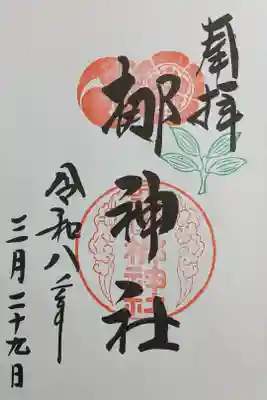 奉拝
梛神社
令和八年
三月二十九日